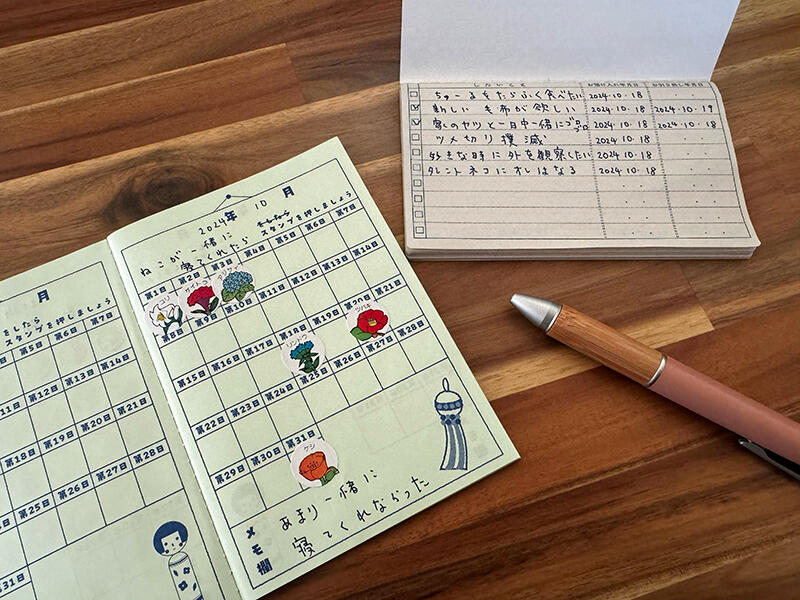 月
をしたら
スタンプを押しましょう
第5日 第6日 第7日
第12日 第13日 第14日
第18日 第19日 第20日 第21日
第25日 第26日 第27日 第28日
2024年 10月
ねこが一緒に
寝てくれたら
スタンプを押しましょう
第1日 第2日 第3日 第4日 第5日 第6日 第7日
ユリ ケイトウ アジサイ
第8日 第9日 第10日 第11日 第12日 第13日 第14日
ツバキ
リンドウ
第15日 第16日 第17日 第18日 第19日 第20日 第21日
第22日 第23日 第24日 第25日 第26日 第27日 第28日
第29日 第30日 第31日
ケシ
メモ欄
あまり一緒に
寝てくれなかった
したいこと
ちゅーるをたらふく食べたい 2024・10・18
新しい毛布が欲しい 2024・10・18 2024・10・19
家のヤツと一日中一緒にゴロゴロ 2024・10・18 2024・10・18
ツメ切り撲滅 2024・10・18
好きな時に外を観察したい 2024・10・18
タレントネコにオレはなる 2024・10・18